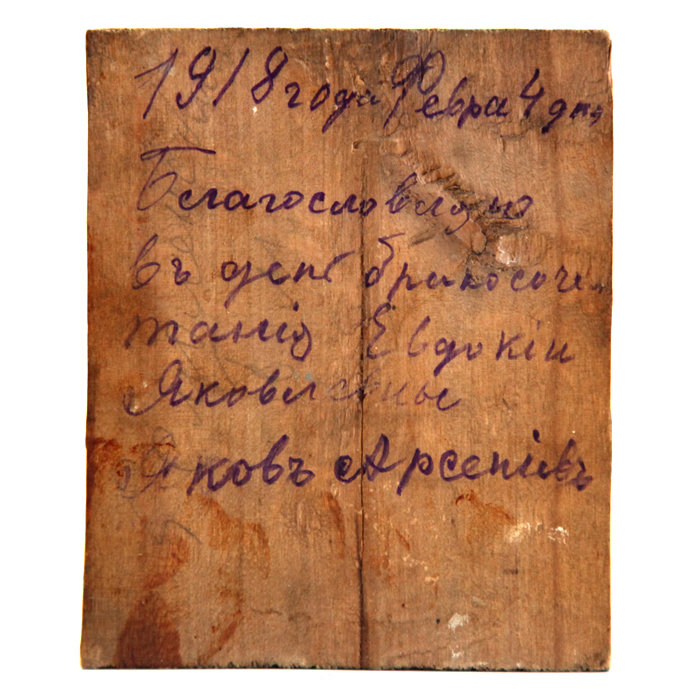 1918 года Февра 4 дня
Благословляю
въ день бракосоче-
танія Евдокіи
Яковлевны
Яковъ Арсенiвъ